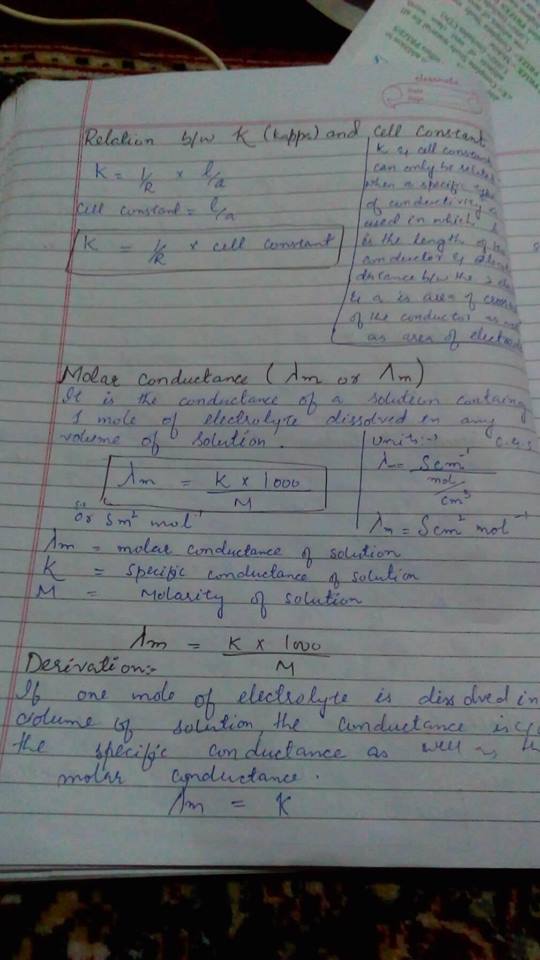 classmate
Date
Page
Relation b/w K (kappa) and cell constant
K = 1/R × l/a
Cell constant = l/a
K = 1/R × cell constant
K & cell constant
can only be related
when a specific type
of conductivity
used in which l
is the length of the
conductor &
distance b/w the 2
& a is area of cross
of the conductor as well
as area of electrode
Molar conductance (λm or Λm)
It is the conductance of a solution containg
1 mole of electrolyte dissolved in any
volume of solution.
Λm = K × 1000 / M
S.I
or Sm² mol⁻¹
units:- C.G.S
λ = Scm⁻¹ / mol / cm³
λm = Scm² mol⁻¹
Λm = molar conductance of solution
K = specific conductance of solution
M = Molarity of solution
Λm = K × 1000 / M
Derivation:-
If one mole of electrolyte is dissolved in
volume of solution, the conductance is
the specific conductance as well as
molar conductance.
Λm = K